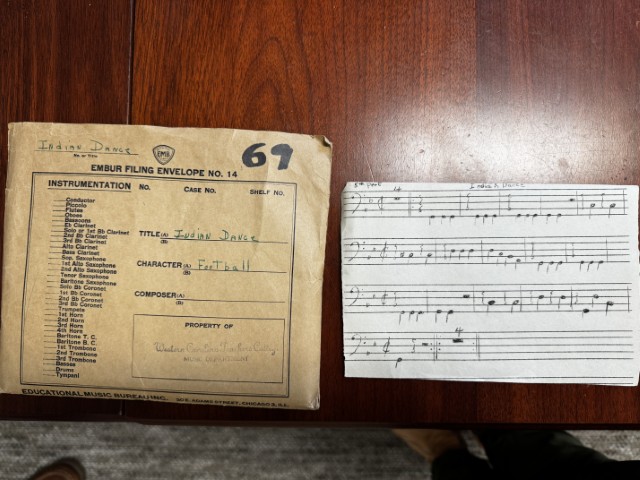 Indian Dance
No. or Title
EMB
69
EMBUR FILING ENVELOPE NO. 14
INSTRUMENTATION NO. CASE NO. SHELF NO.
Conductor
Piccolo
Flutes
Oboes
Bassoons
Eb Clarinet
Solo or 1st Bb Clarinet
2nd Bb Clarinet
3rd Bb Clarinet
Alto Clarinet
Bass Clarinet
Sop. Saxophone
1st Alto Saxophone
2nd Alto Saxophone
Tenor Saxophone
Baritone Saxophone
Solo Bb Cornet
1st Bb Cornet
2nd Bb Cornet
3rd Bb Cornet
Trumpets
1st Horn
2nd Horn
3rd Horn
4th Horn
Baritone T. C.
Baritone B. C.
1st Trombone
2nd Trombone
3rd Trombone
Basses
Drums
Tympani
TITLE (A) Indian Dance
(B)
CHARACTER (A) Football
(B)
COMPOSER (A)
(B)
PROPERTY OF
Western Carolina Teachers College
MUSIC DEPARTMENT
EDUCATIONAL MUSIC BUREAU INC. STREET, CHICAGO
Indian Dance
4
4